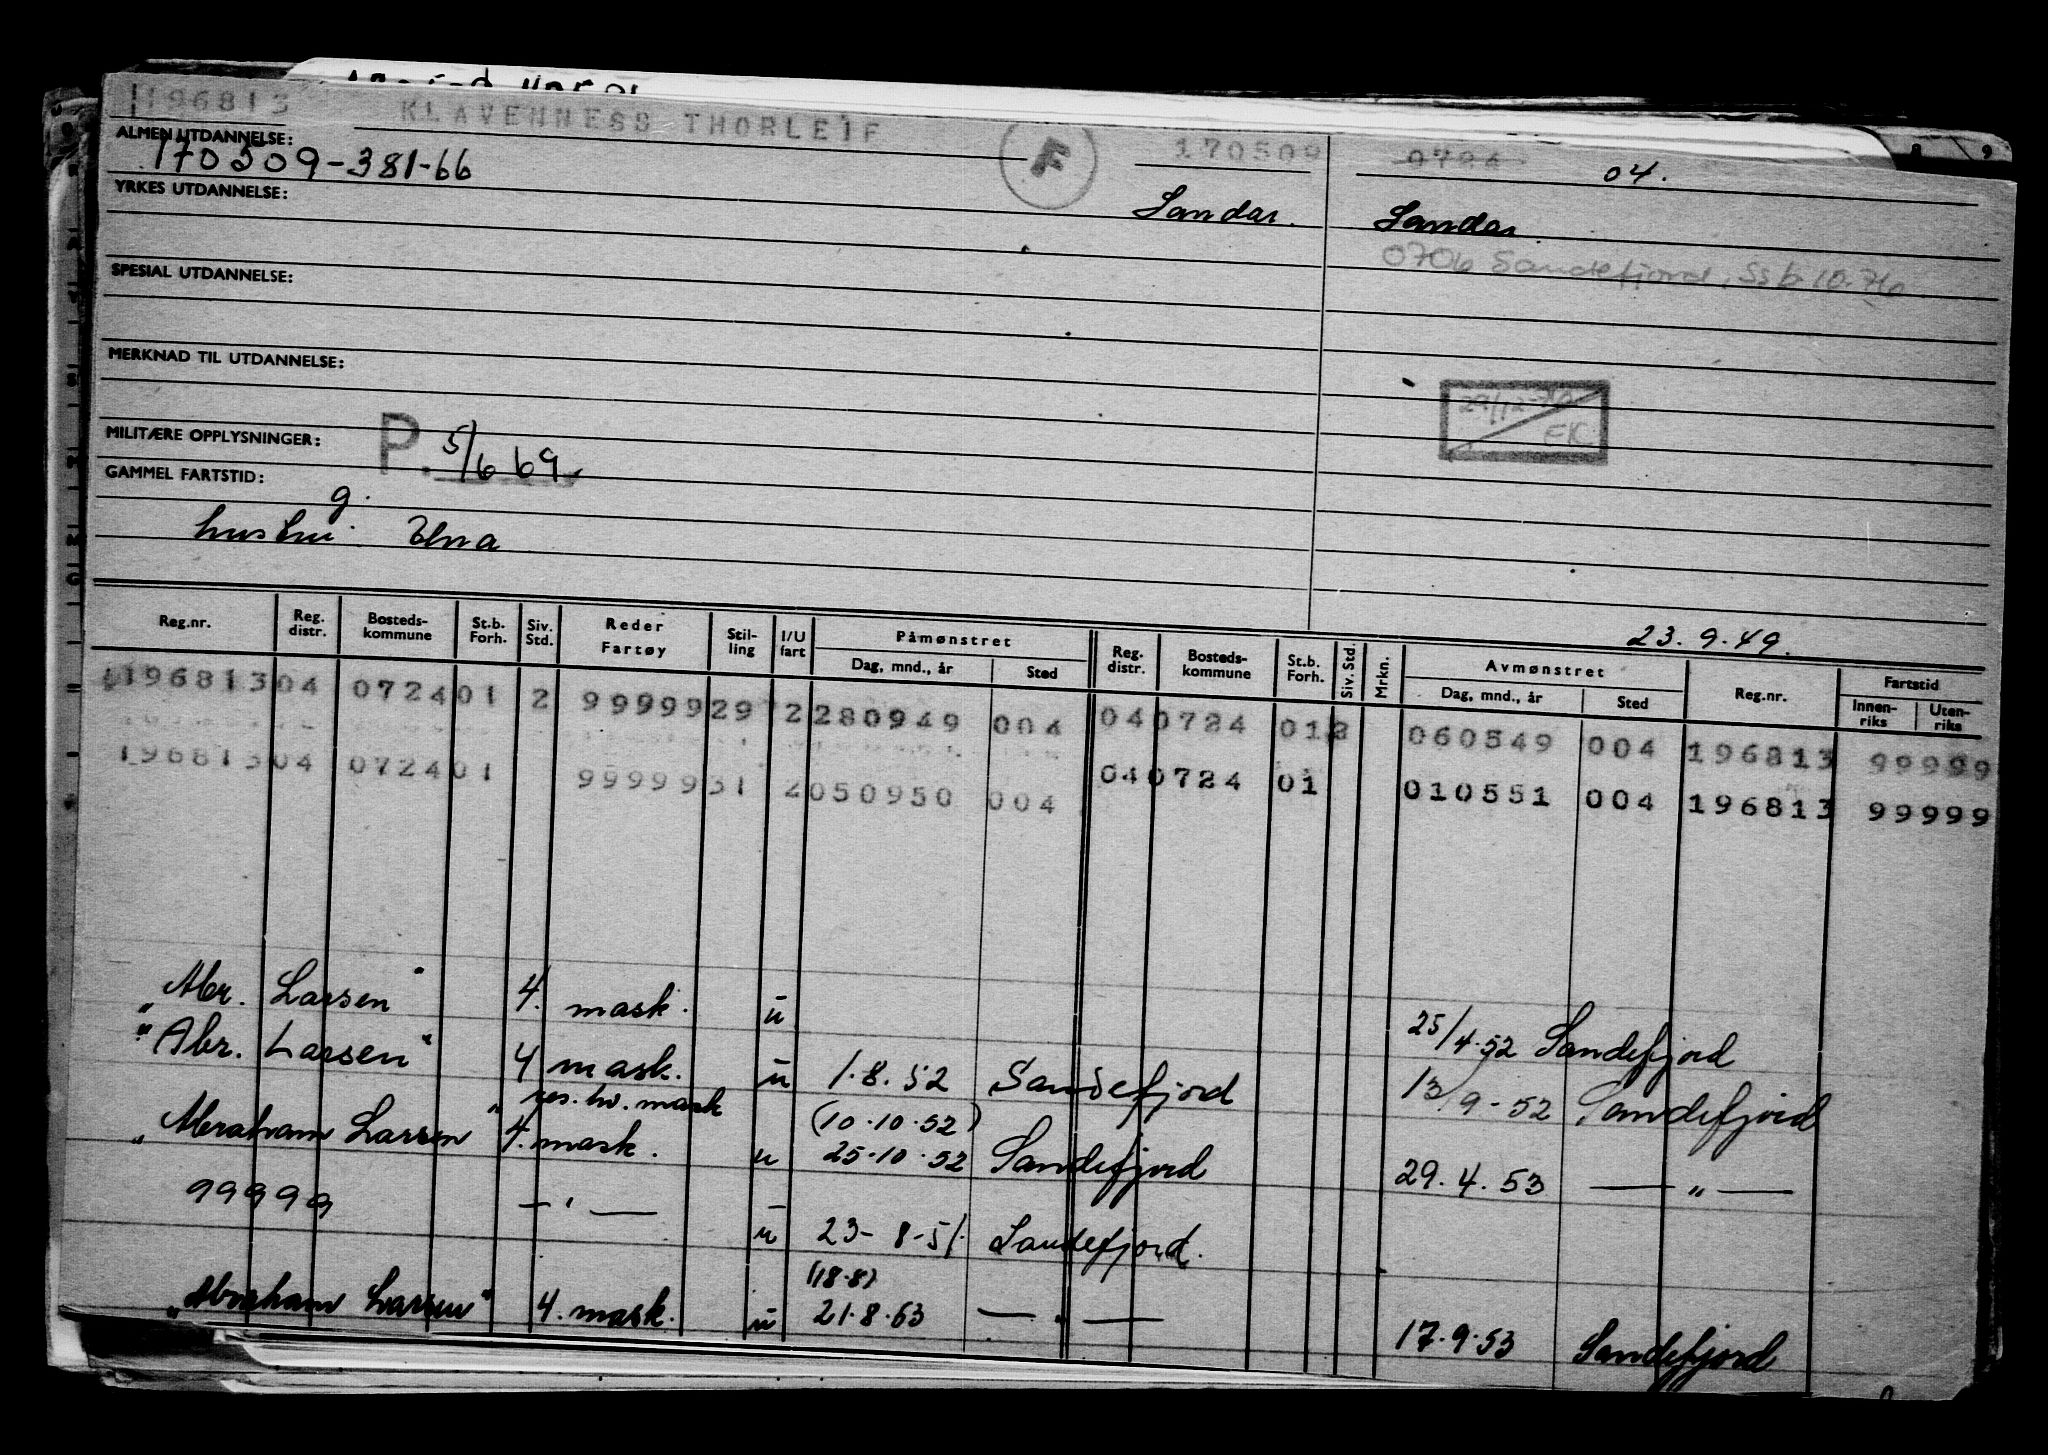 196813 KLAVENNESS THORLEIF F 170509 0724 04.
ALMEN UTDANNELSE:
170509-381-66
YRKES UTDANNELSE: Sandar. Sandar
0706 Sandefjord, Ssb 10.76
SPESIAL UTDANNELSE:
MERKNAD TIL UTDANNELSE:
29/12-
EK
MILITÆRE OPPLYSNINGER: P. 5/6 69
GAMMEL FARTSTID:
g.
hustru Elna
23.9.49.
Reg.nr. Reg. distr. Bosteds-kommune St.b. Forh. Siv. Std. Reder Fartøy Stil-ling I/U fart Påmønstret Dag, mnd., år Sted Reg. distr. Bosteds-kommune St.b. Forh. Siv. Std. Mrkn. Avmønstret Dag, mnd., år Sted Reg.nr. Fartstid Innen-riks Uten-riks
196813 04 0724 01 2 99999 29 2 280949 004 04 0724 01 2 060549 004 196813 99999
196813 04 0724 01 99999 31 2 050950 004 04 0724 01 010551 004 196813 99999
"Abr. Larsen" 4. mask. u 25/4.52 Sandefjord
"Abr. Larsen" 4 mask. u 1.8.52 Sandefjord 13/9-52 Sandefjord
res. hv. mask (10.10.52)
"Abraham Larsen" 4. mask. u 25.10.52 Sandefjord 29.4.53 — " —
99999 — " — u 23-8-51. Sandefjord.
(18.8)
"Abraham Larsen" 4. mask. u 21.8.53 — " — 17.9.53 Sandefjord